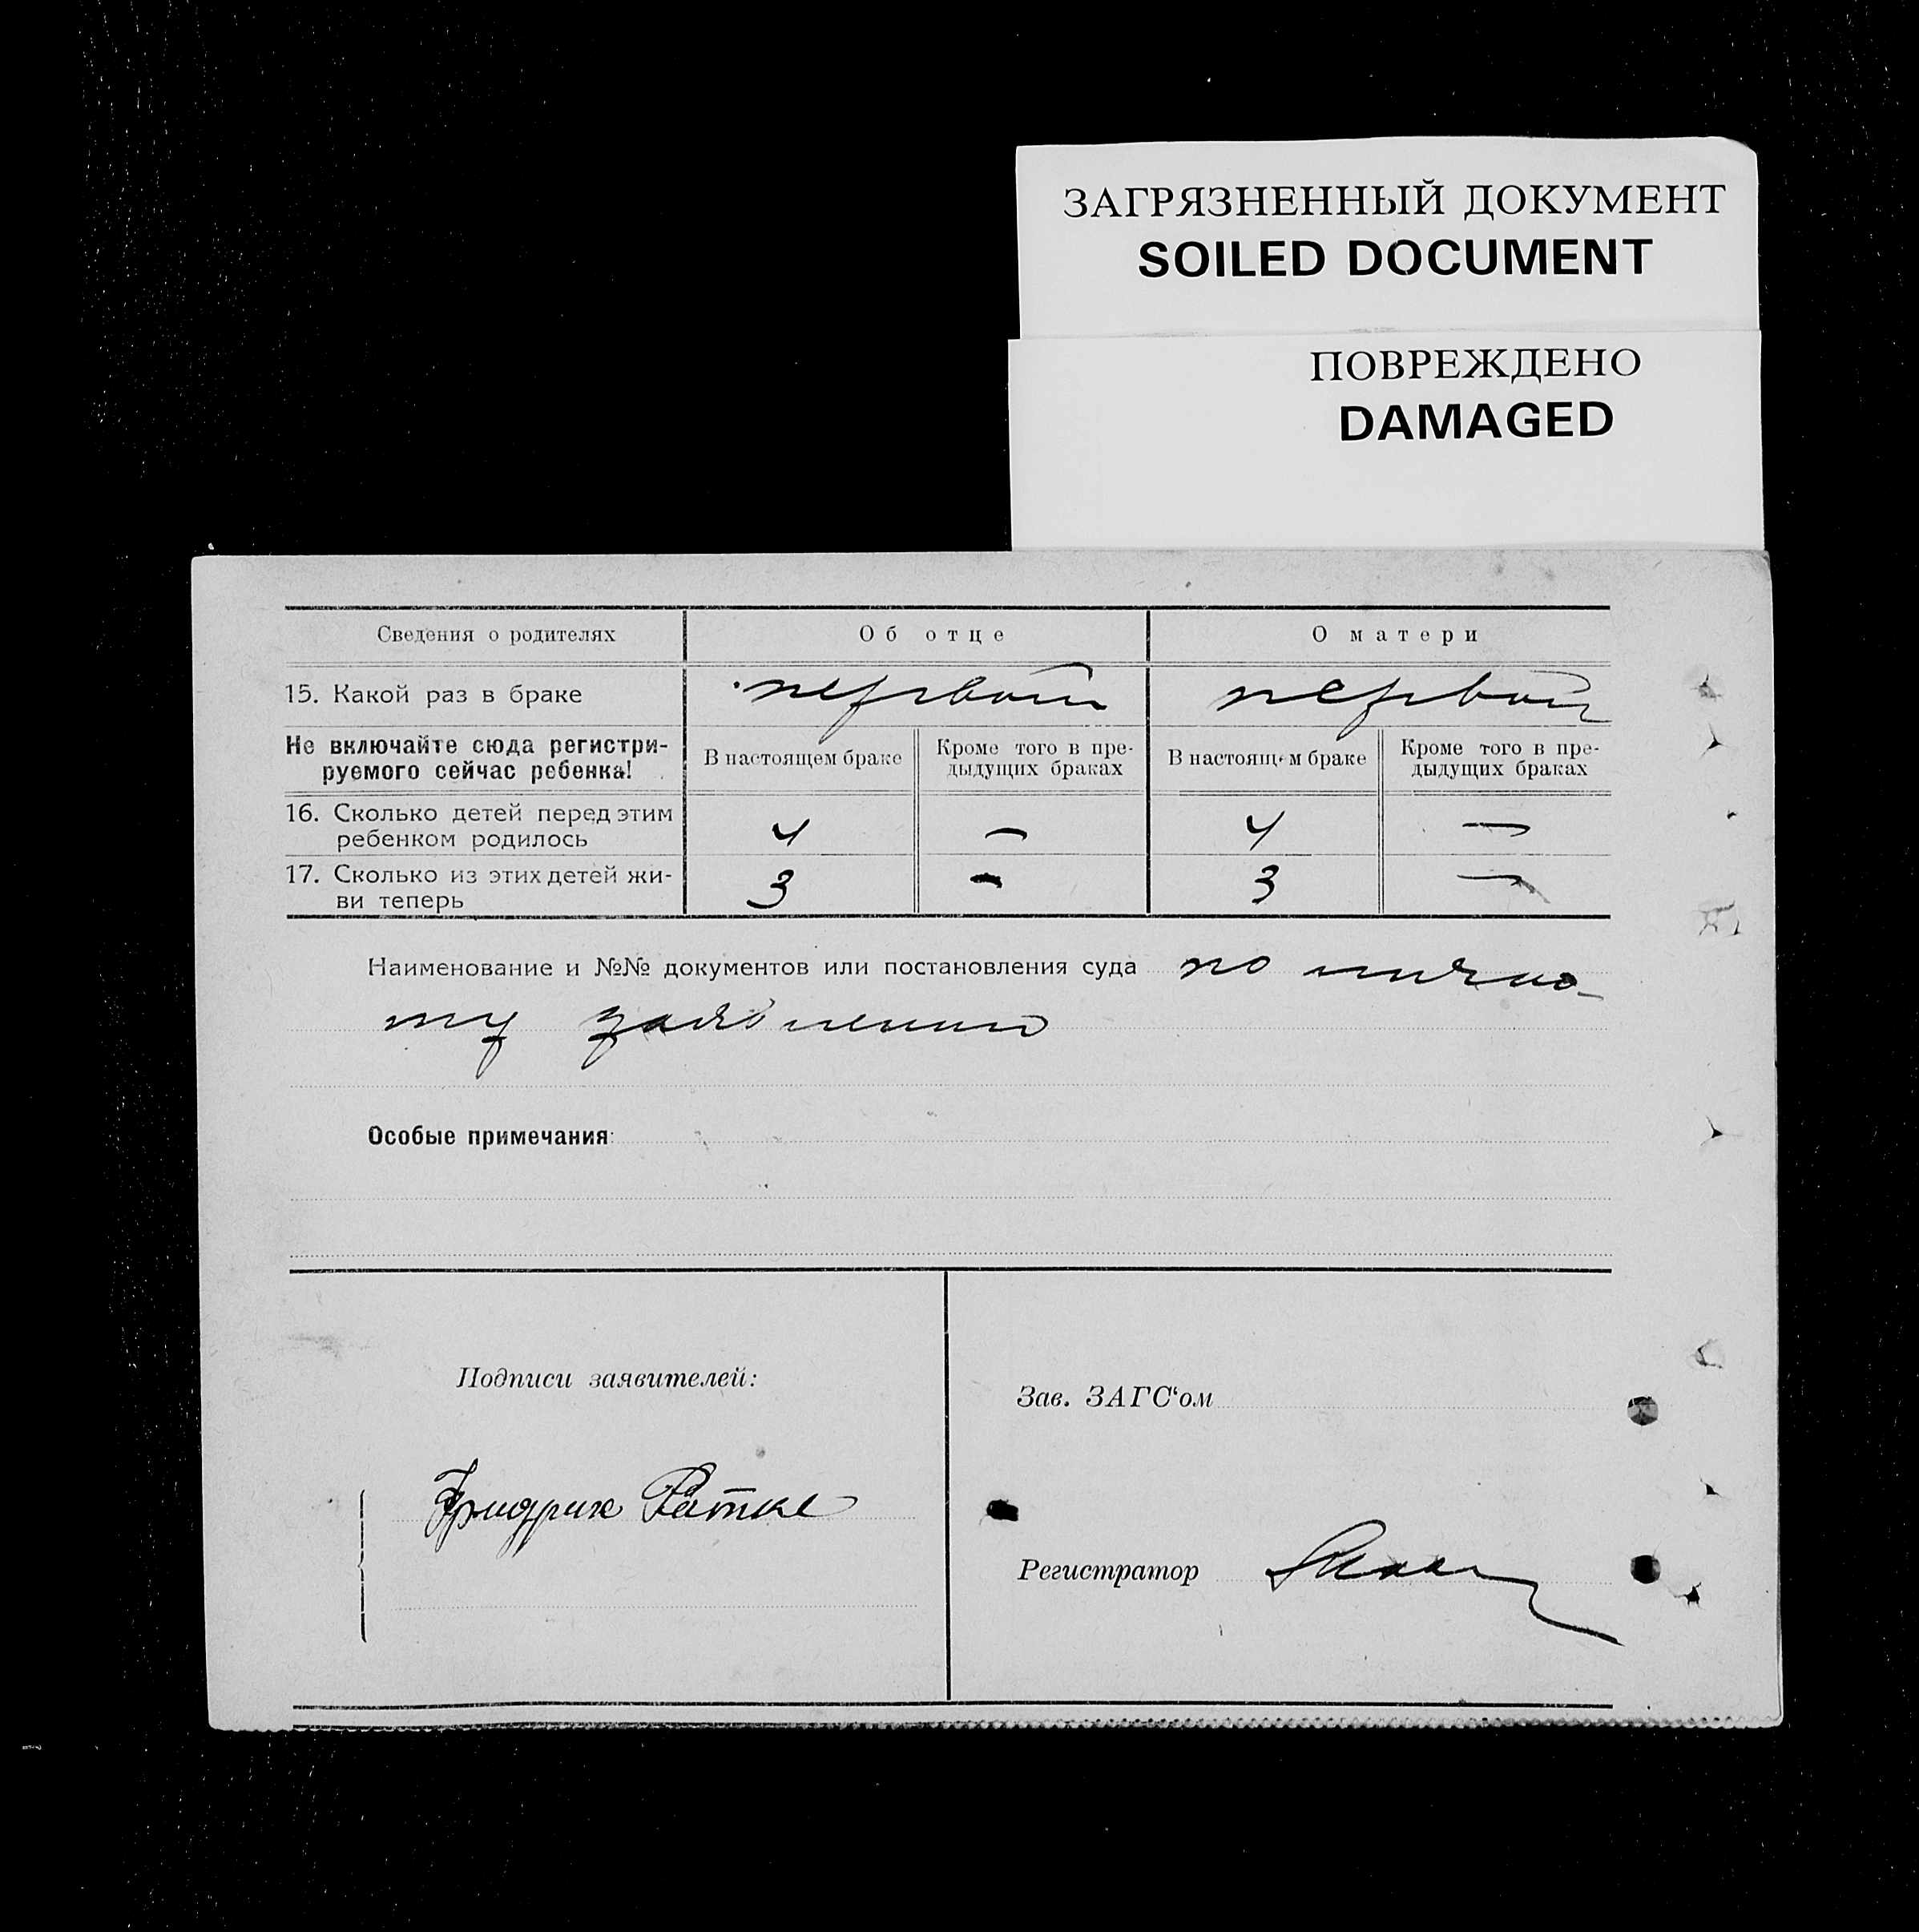 ЗАГРЯЗНЕННЫЙ ДОКУМЕНТ
SOILED DOCUMENT
ПОВРЕЖДЕНО
DAMAGED
Сведения о родителях Об отце О матери
15. Какой раз в браке первый первый
Не включайте сюда регистри-
руемого сейчас ребенка!
В настоящем браке
Кроме того в пре-
дыдущих браках
В настоящем браке
Кроме того в пре-
дыдущих браках
16. Сколько детей перед этим
ребенком родилось
4 — 4 —
17. Сколько из этих детей жи-
ви теперь
3 - 3 —
Наименование и №№ документов или постановления суда по лично-
му заявлению
Особые примечания:
Подписи заявителей:
Фридрих Ратке
Зав. ЗАГС‘ом
Регистратор